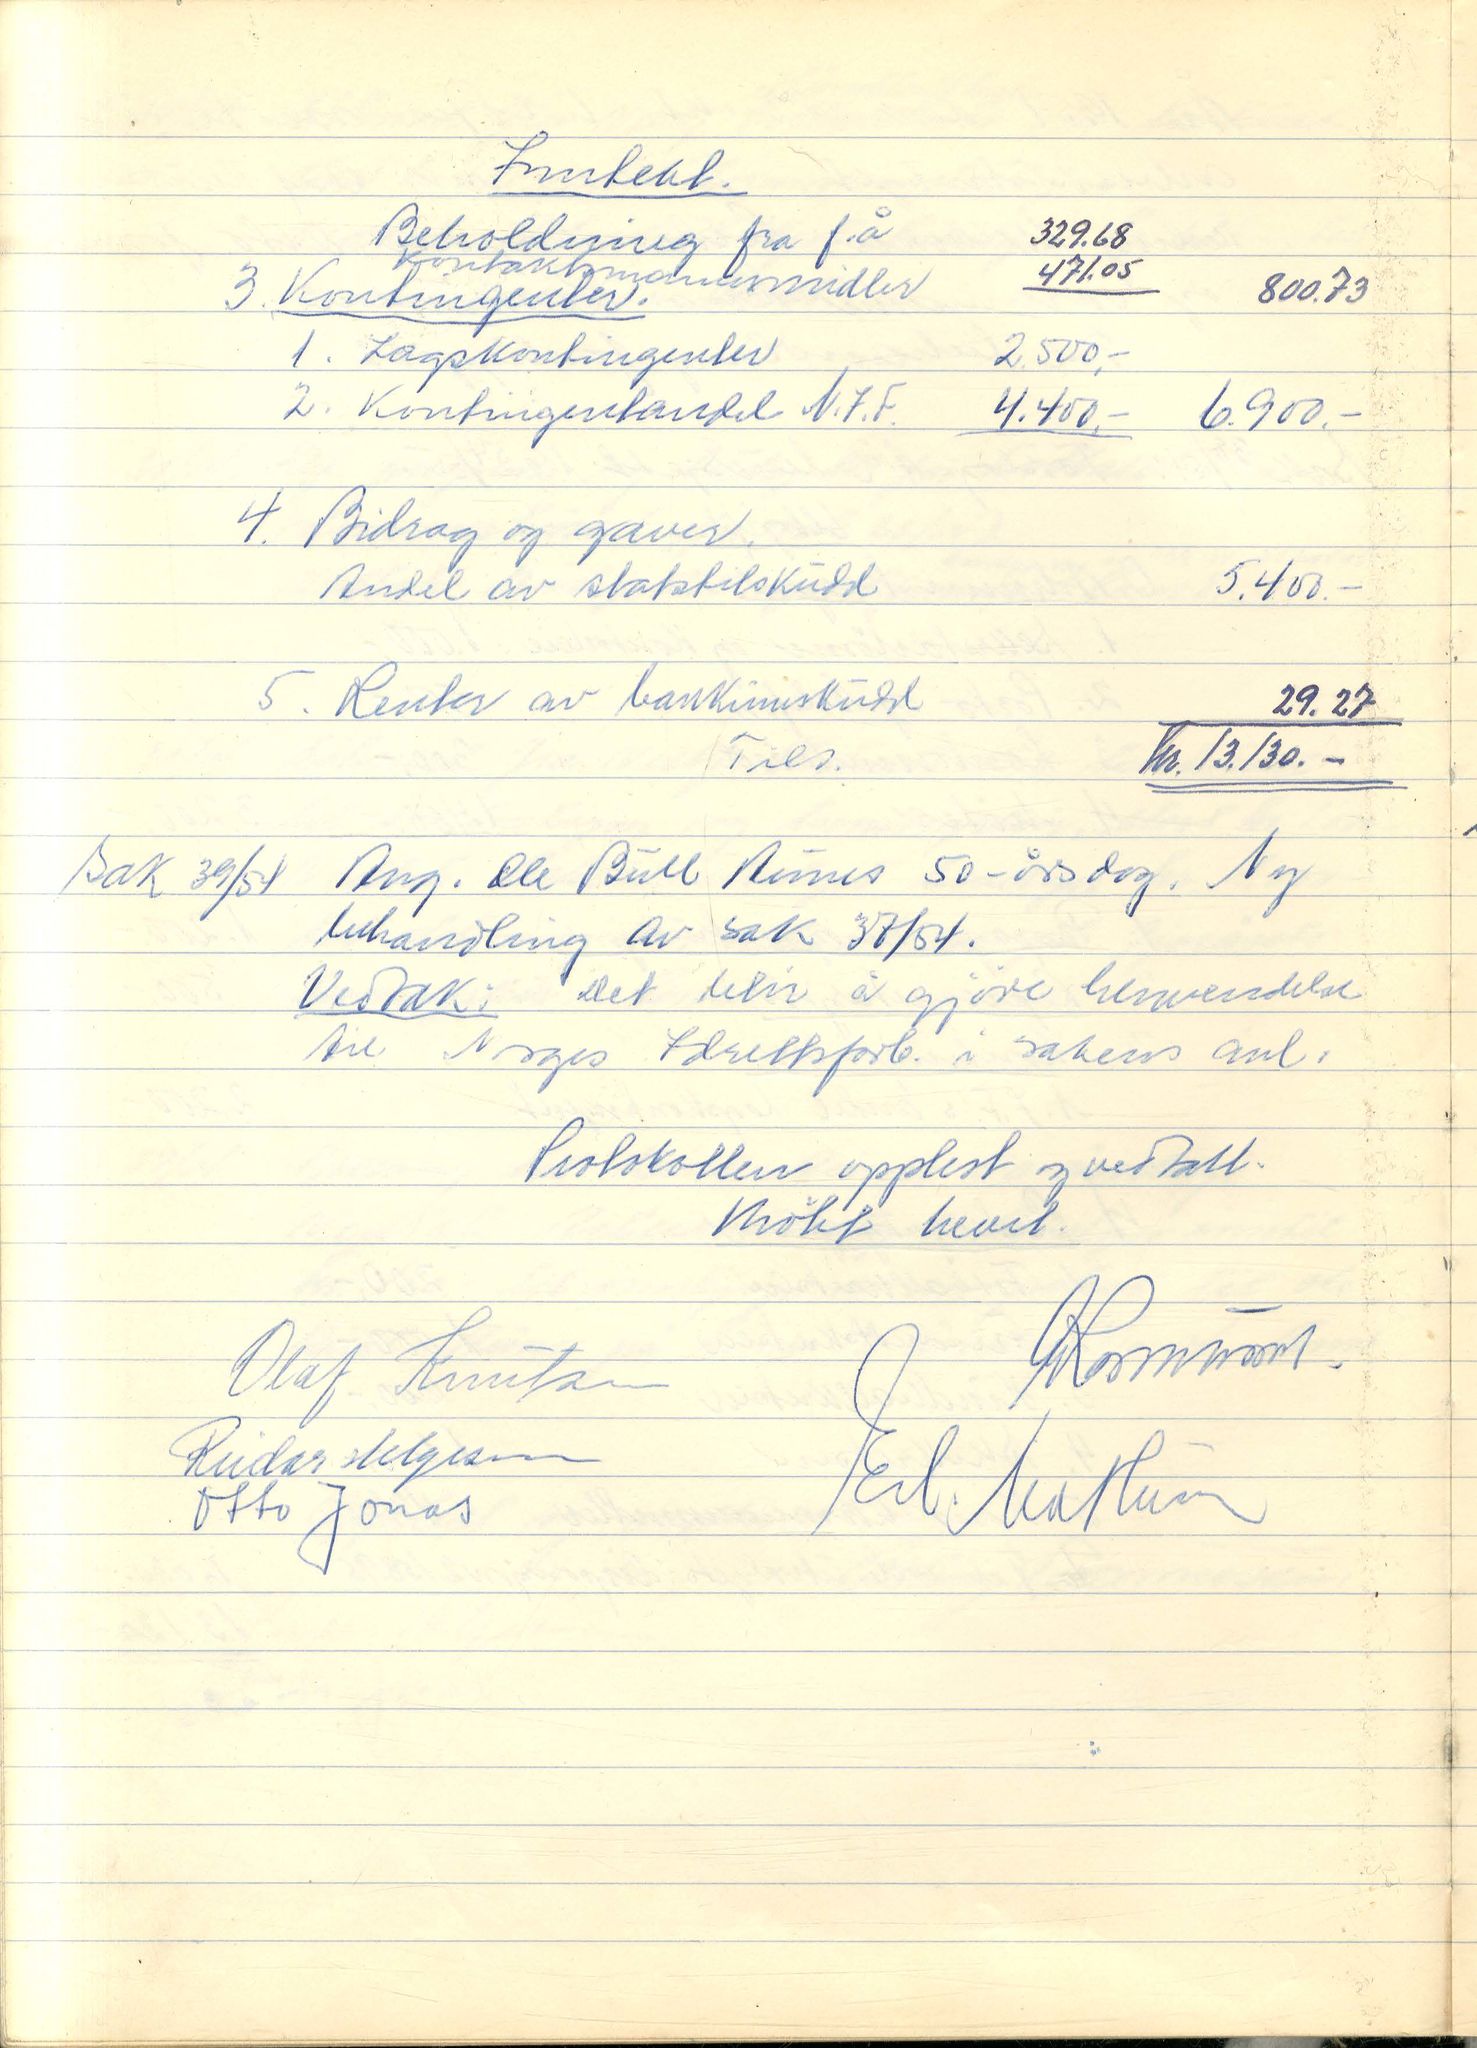 Inntekt.
Beholdning fra f.å 329.68
Kontaktmannsmidler 471.05 800.73
3. Kontingenter.
1. Lagskontingenter 2.500,-
2. Kontingentandel N.F.F. 4.400,- 6.900.-
4. Bidrag og gaver.
Andel av statstilskudd 5.400.-
5. Renter av bankinnskudd 29.27
Tils. kr. 13.130.-
Sak 39/54 Ang. Ole Bull 50-årsdag. Ny
behandling av sak 37/54.
Vedtak: Det blir å gjöre henvendelse
til Norges Idrettsforb. i sakens anl.
Protokollen opplest og vedtatt.
Mötet hevet.
Olaf Knutsen
Reidar Helgesen
Otto Jonas